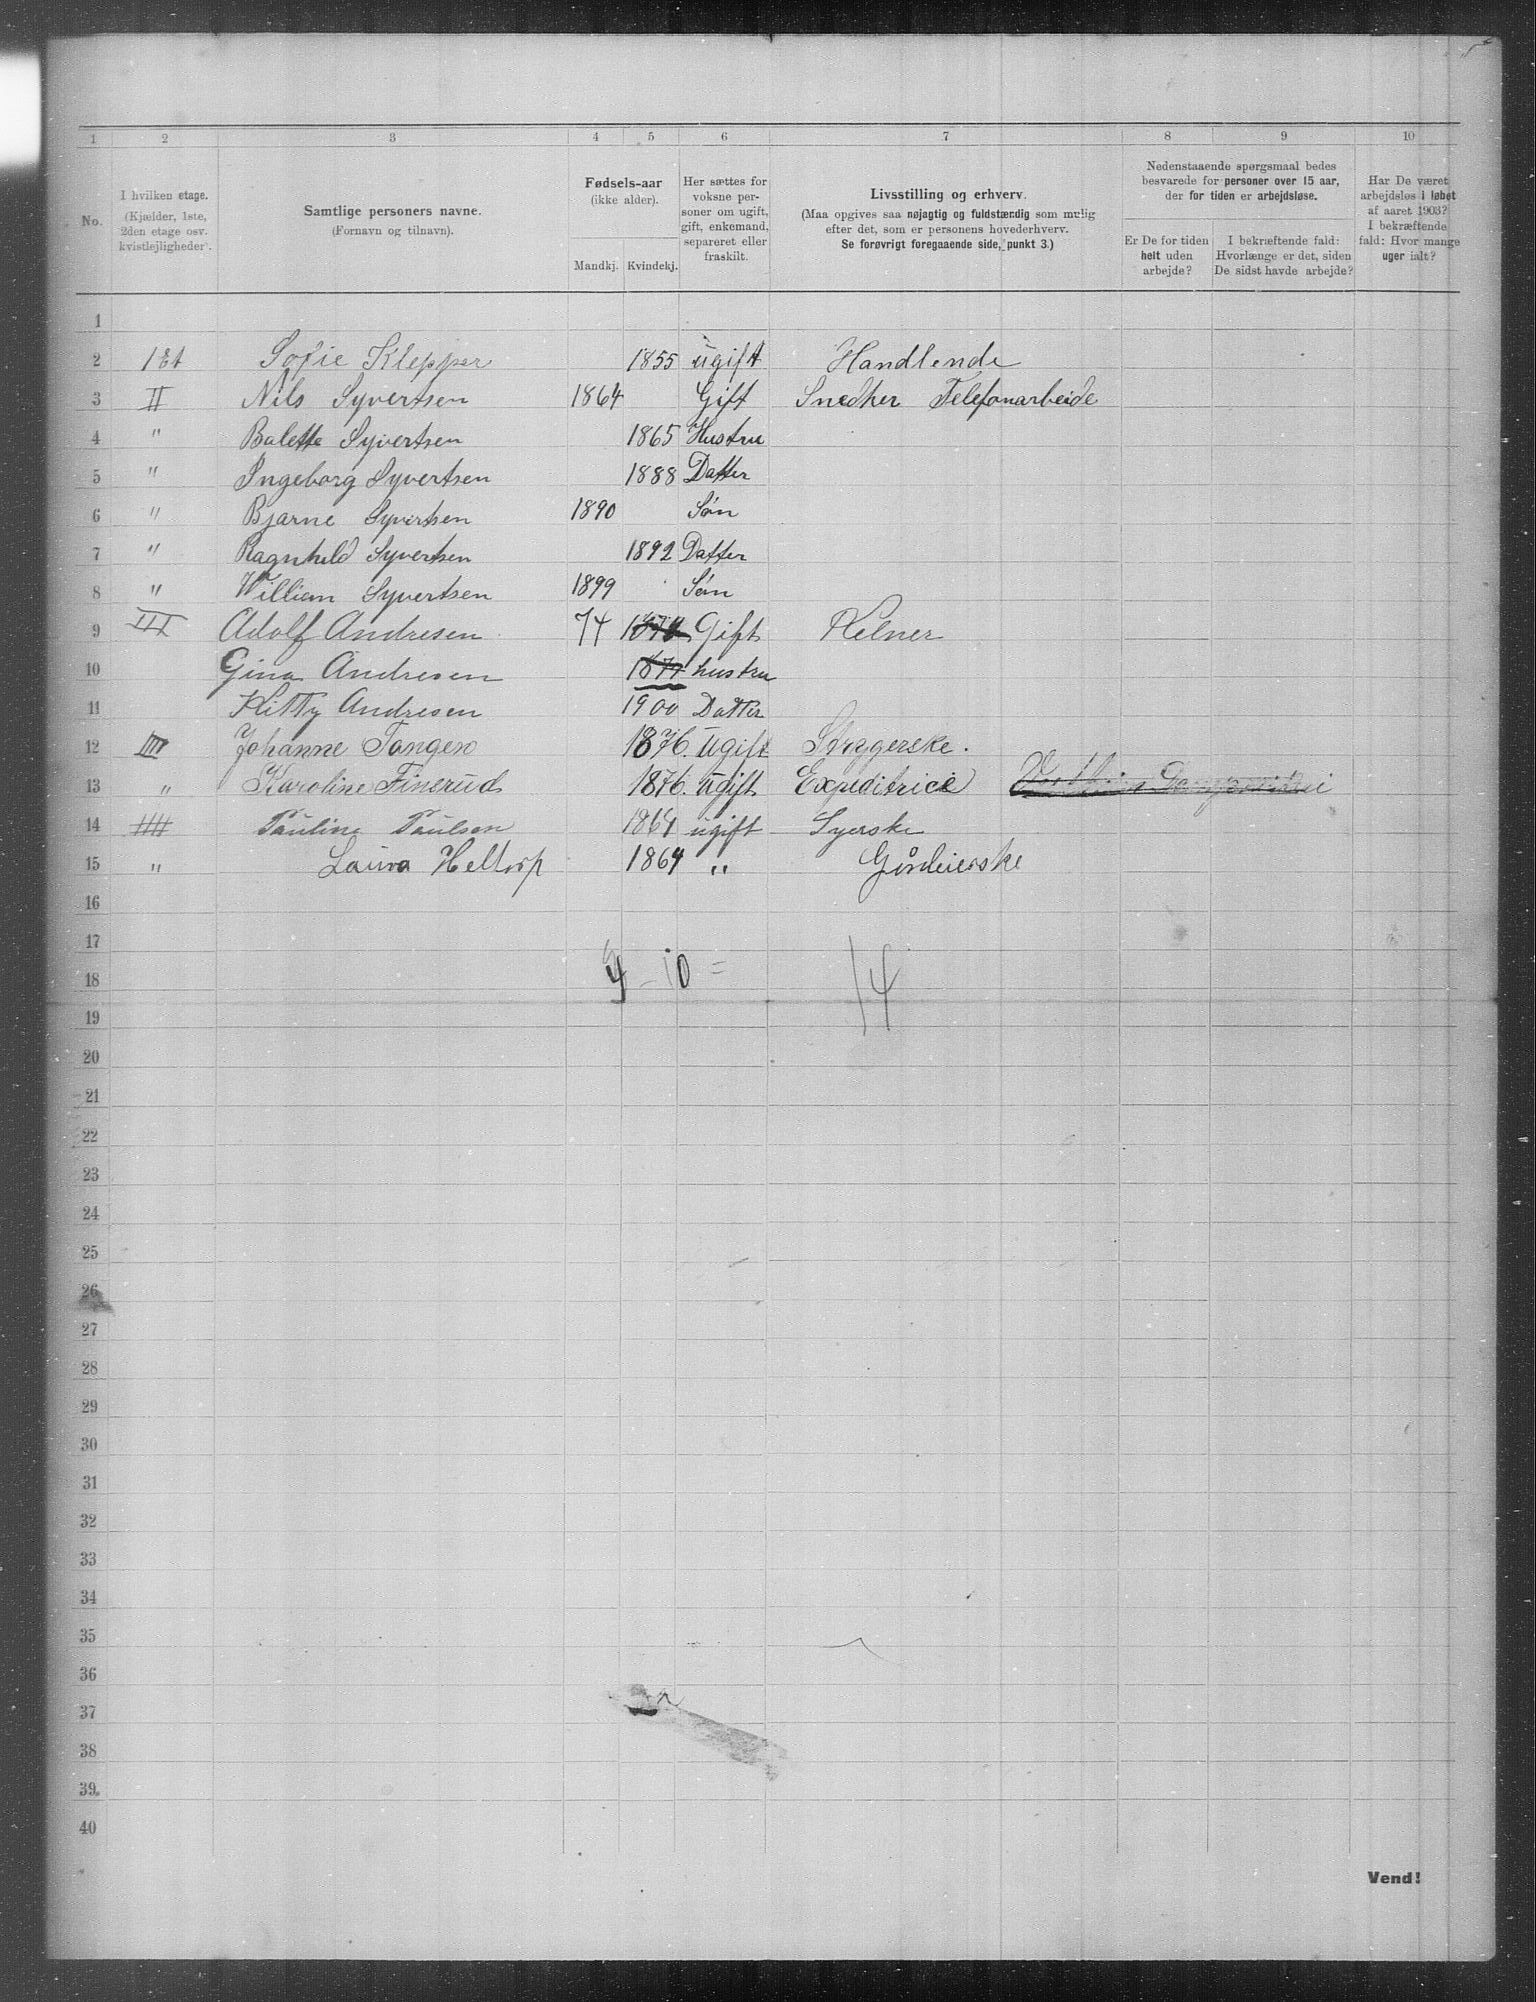 1 2 3 4 5 6 7 8 9 10
No.
I hvilken etage.
(Kjælder, 1ste,
2den etage osv.
kvistlejligheder).
Samtlige personers navne.
(Fornavn og tilnavn).
Fødsels-aar
(ikke alder).
Mandkj. Kvindekj.
Her sættes for
voksne per-
soner om ugift,
gift, enkemand,
separeret eller
fraskilt.
Livsstilling og erhverv.
(Maa opgives saa nøjagtig og fuldstændig som mulig
efter det, som er personens hovederhverv.
Se forøvrigt foregaaende side, punkt 3.)
Nedenstaaende spørgsmaal bedes
besvarede for personer over 15 aar,
der for tiden er arbejdsløse.
Er De for tiden
helt uden
arbejde?
I bekræftende fald:
Hvorlænge er det, siden
De sidst havde arbejde?
Har De været
arbejdsløs i løbet
af aaret 1903?
I bekræftende
fald: Hvor mange
uger ialt?
1
2 1 Et Sofie Klepper 1855 ugift Handlende
3 II Nils Syvertsen 1864 Gift Snedker Telefonarbeide
4 " Balette Syvertsen 1865 Hustru
5 " Ingeborg Syvertsen 1888 Datter
6 " Bjarne Syvertsen 1890 Søn
7 " Ragnhild Syvertsen 1892 Datter
8 " William Syvertsen 1899 Søn
9 III Adolf Andresen 74 1874 Gift Kelner
10 Gina Andresen 1877 hustru
11 Kitty Andresen 1900 Datter
12 IIII Johanne Tangen 1876. Ugift Strygerske.
13 " Karoline Finerud 1876. ugift Expeditrice
14 Pauline Paulsen 1864 ugift Syerske
15 " Laura Heltorp 1864 "
16
17
18 4 – 10 = 14
19
20
21
22
23
24
25
26
27
28
29
30
31
32
33
34
35
36
37
38
39
40
Vend!